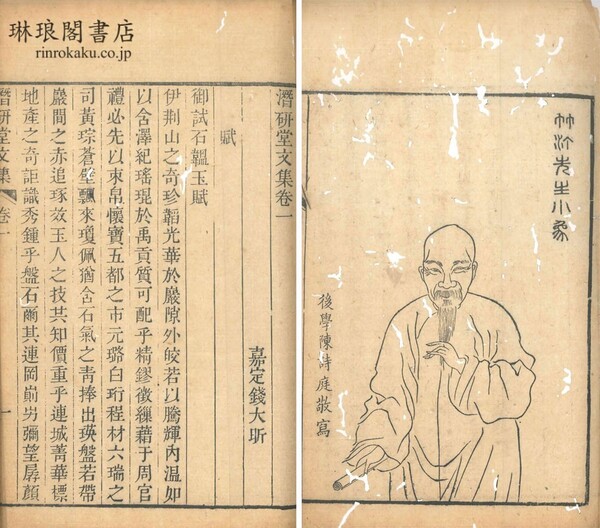 琳琅閣書店
rinrokaku.co.jp
竹汀先生小象
後學陳詩庭敬寫
潛研堂文集卷一
嘉定錢大昕
賦
御試石韞玉賦
伊荆山之奇珍韜光華於巖隙外皎若以騰輝內温如
以含澤紀瑤琨於禹貢質可配乎精鏐徵繅藉于周官
禮必先以束帛懷寶五都之市元璐白珩程材六瑞之
司黃琮蒼璧飄來瓊佩猶含石氣之青捧出瑛盤若帶
巖間之赤追琢效玉人之技共知價重乎連城菁華標
地產之奇詎識秀鍾乎盤石爾其連岡崱屴彌望孱顏
潛研堂文集 卷一 一